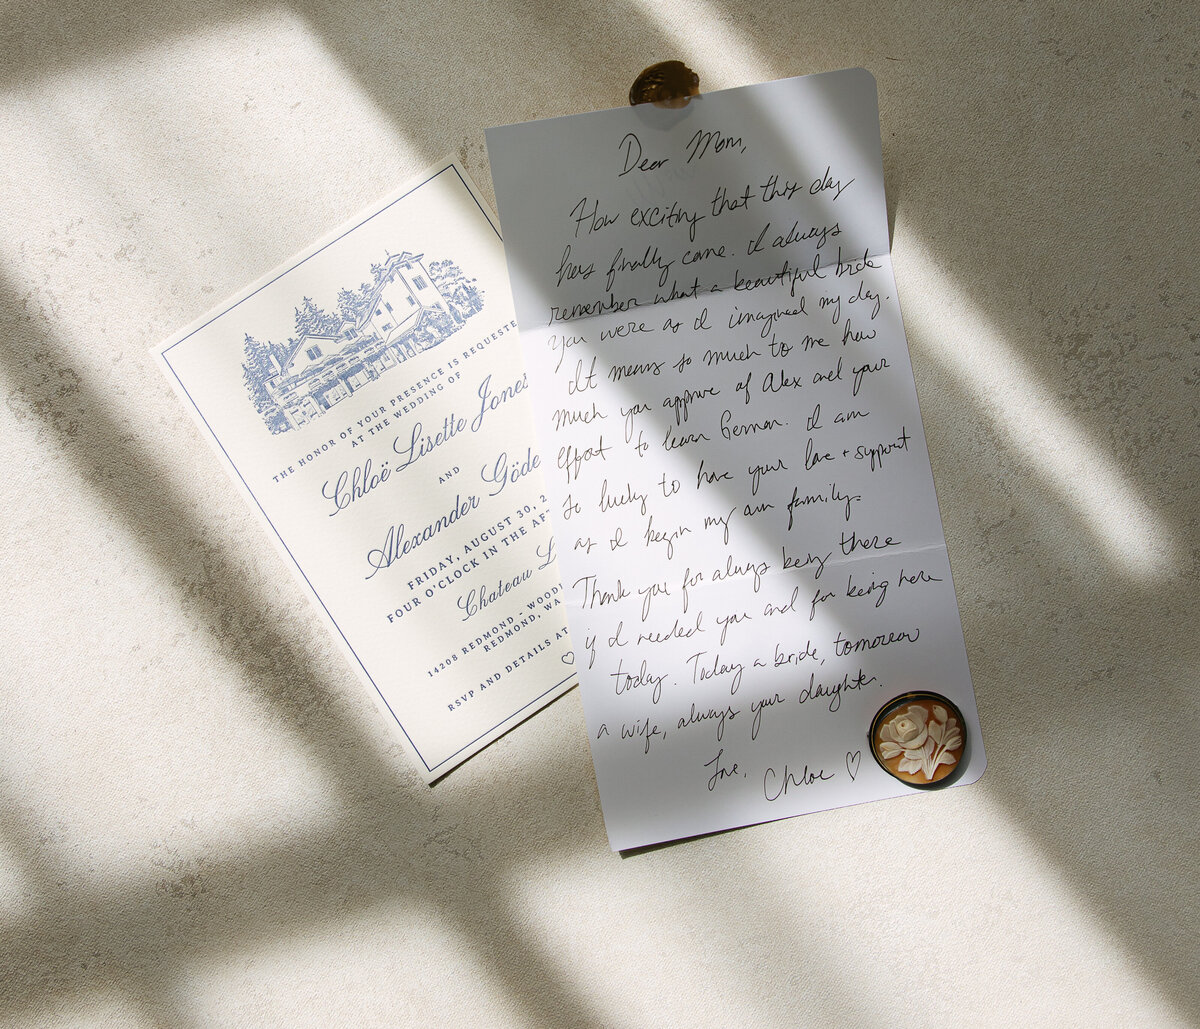 THE HONOR OF YOUR PRESENCE IS REQUESTE
AT THE WEDDING OF
Chloë Lisette Jones
AND
Alexander Göde
FRIDAY, AUGUST 30, 2
FOUR O'CLOCK IN THE AFT
Chateau L
14208 REDMOND - WOODI
REDMOND, WA
RSVP AND DETAILS AT
Dear Mom,
How exciting that this day
has finally come. I always
remember what a beautiful bride
you were as I imagined my day.
It means so much to me how
much you approve of Alex and your
effort to learn German. I am
so lucky to have your love + support
as I begin my own family.
Thank you for always being there
if I needed you and for being here
today. Today a bride, tomorrow
a wife, always your daughter.
Love,
Chloe ♡